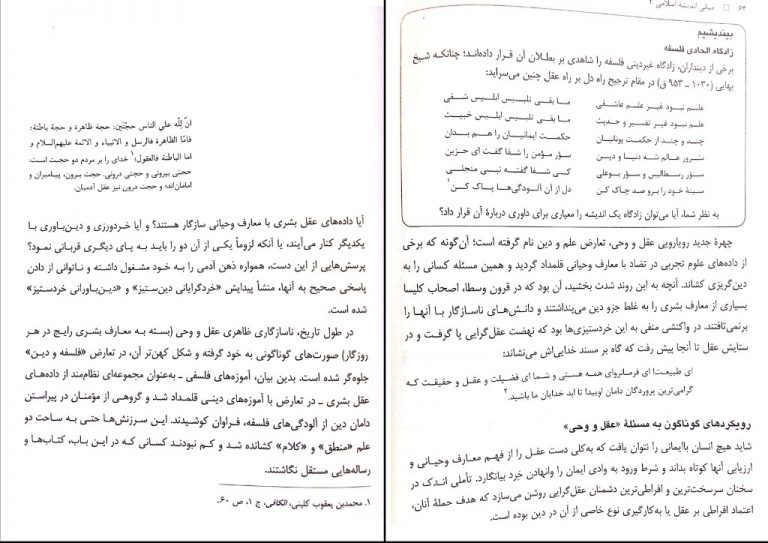 انّ للّه علي الناس حجّتين: حجة ظاهرة و حجة باطنة؛
فامّا الظاهرة فالرسل و الانبياء و الائمة عليهم‌السلام و
اما الباطنة فالعقول؛¹ خدای را بر مردم دو حجت است،
حجتی بیرونی و حجتی درونی. حجت برون، پیامبران و
امامان‌اند؛ و حجت درون نیز عقل آدمیان.
آیا داده‌های عقل بشری با معارف وحیانی سازگار هستند؟ و آیا خردورزی و دین‌باوری با
یکدیگر کنار می‌آیند، یا آنکه لزوماً یکی از آن دو را باید به پای دیگری قربانی نمود؟
پرسش‌هایی از این دست، همواره ذهن آدمی را به خود مشغول داشته و ناتوانی از دادن
پاسخی صحیح به آنها، منشأ پیدایش «خردگرایانی دین‌ستیز» و «دین‌باورانی خردستیز»
شده است.
در طول تاریخ، ناسازگاری ظاهری عقل و وحی (بسته به معارف بشری رایج در هر
روزگار) صورت‌های گوناگونی به خود گرفته و شکل کهن‌تر آن، در تعارض «فلسفه و دین»
جلوه‌گر شده است. بدین بیان، آموزه‌های فلسفی ـ به‌عنوان مجموعه‌ای نظام‌مند از داده‌های
عقل بشری ـ در تعارض با آموزه‌های دینی قلمداد شد و گروهی از مؤمنان در پیراستن
دامان دین از آلودگی‌های فلسفه، فراوان کوشیدند. این سرزنش‌ها حتی به ساحت دو
علم «منطق» و «کلام» کشانده شد و کم نبودند کسانی که در این باب، کتاب‌ها و
رساله‌هایی مستقل نگاشتند.
۱. محمدبن یعقوب کلینی، الکافی، ج ۱، ص ۶۰.
۶۴ □ مبانی اندیشه اسلامی ۲
بیندیشیم
زادگاه الحادی فلسفه
برخی از دینداران، زادگاه غیردینی فلسفه را شاهدی بر بطلان آن قرار داده‌اند؛ چنانکه شیخ
بهایی (۱۰۳۰ ـ ۹۵۳ ق) در مقام ترجیح راه دل بر راه عقل چنین می‌سراید:
علم نبود غیر علم عاشقی ما بقی تلبیس ابلیس شقی
علم نبود غیر تفسیر و حدیث ما بقی تلبیس ابلیس خبیث
چند و چند از حکمت یونانیان حکمت ایمانیان را هم بدان
سرور عالم شه دنیا و دین سؤر مؤمن را شفا گفت ای حزین
سؤر رسطالیس و سؤر بوعلی کی شفا گفته نبی منجلی
سینهٔ خود را برو صد چاک کن دل از آن آلودگی‌ها پاک کن¹
به نظر شما، آیا می‌توان زادگاه یک اندیشه را معیاری برای داوری دربارهٔ آن قرار داد؟
چهرهٔ جدید رویارویی عقل و وحی، تعارض علم و دین نام گرفته است؛ آن‌گونه که برخی
از داده‌های علوم تجربی در تضاد با معارف وحیانی قلمداد گردید و همین مسئله کسانی را به
دین‌گریزی کشاند. آنچه به این روند شدت بخشید، آن بود که در قرون وسطا، اصحاب کلیسا
بسیاری از معارف بشری را به غلط جزو دین می‌پنداشتند و دانش‌های ناسازگار با آنها را
برنمی‌تافتند. در واکنشی منفی به این خردستیزی‌ها بود که نهضت عقل‌گرایی پا گرفت و در
ستایش عقل تا آنجا پیش رفت که گاه بر مسند خدایی‌اش می‌نشاند:
ای طبیعت! ای فرمانروای همه هستی و شما ای فضیلت و عقل و حقیقت که
گرامی‌ترین پروردگان دامان اویید! تا ابد خدایان ما باشید.²
رویکردهای گوناگون به مسئلهٔ «عقل و وحی»
شاید هیچ انسان باایمانی را نتوان یافت که به‌کلی دست عقل را از فهم معارف وحیانی و
ارزیابی آنها کوتاه بداند و شرط ورود به وادی ایمان را وانهادن خِرد بیانگارد. تأملی اندک در
سخنان سرسخت‌ترین و افراطی‌ترین دشمنان عقل‌گرایی روشن می‌سازد که هدف حملهٔ آنان،
اعتماد افراطی بر عقل یا به‌کارگیری نوع خاصی از آن در دین بوده است.